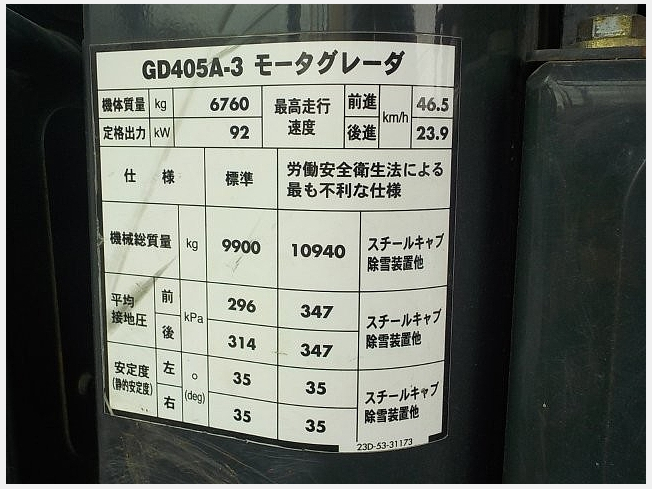 GD405A-3 モータグレーダ
機体質量 kg 6760 最高走行速度 前進 km/h 46.5
定格出力 kW 92 後進 23.9
仕様 標準 労働安全衛生法による
最も不利な仕様
機械総質量 kg 9900 10940 スチールキャブ
除雪装置他
平均接地圧 前 kPa 296 347 スチールキャブ
後 314 347 除雪装置他
安定度 左 ° 35 35 スチールキャブ
(静的安定度) 右 (deg) 35 35 除雪装置他
23D-53-31173